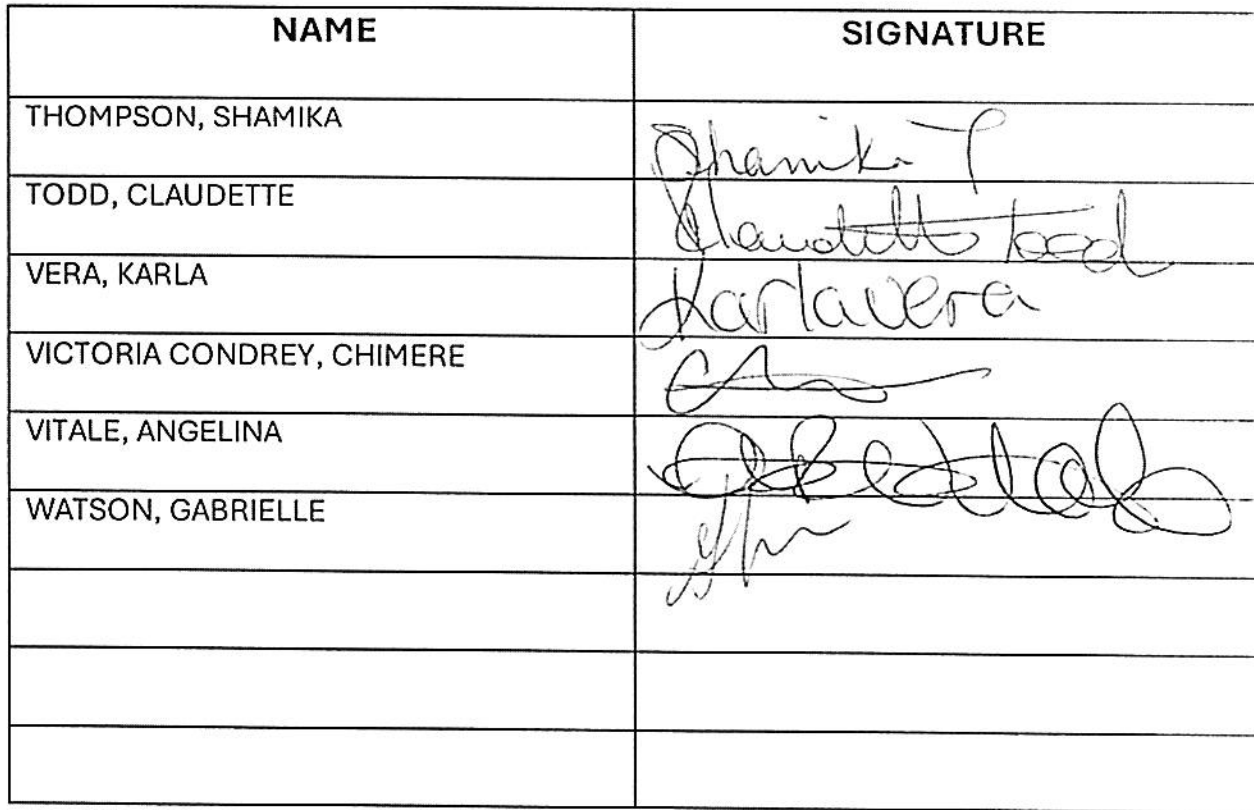 NAME SIGNATURE
THOMPSON, SHAMIKA Shamika T
TODD, CLAUDETTE Claudette Todd
VERA, KARLA Karla vera
VICTORIA CONDREY, CHIMERE
VITALE, ANGELINA
WATSON, GABRIELLE